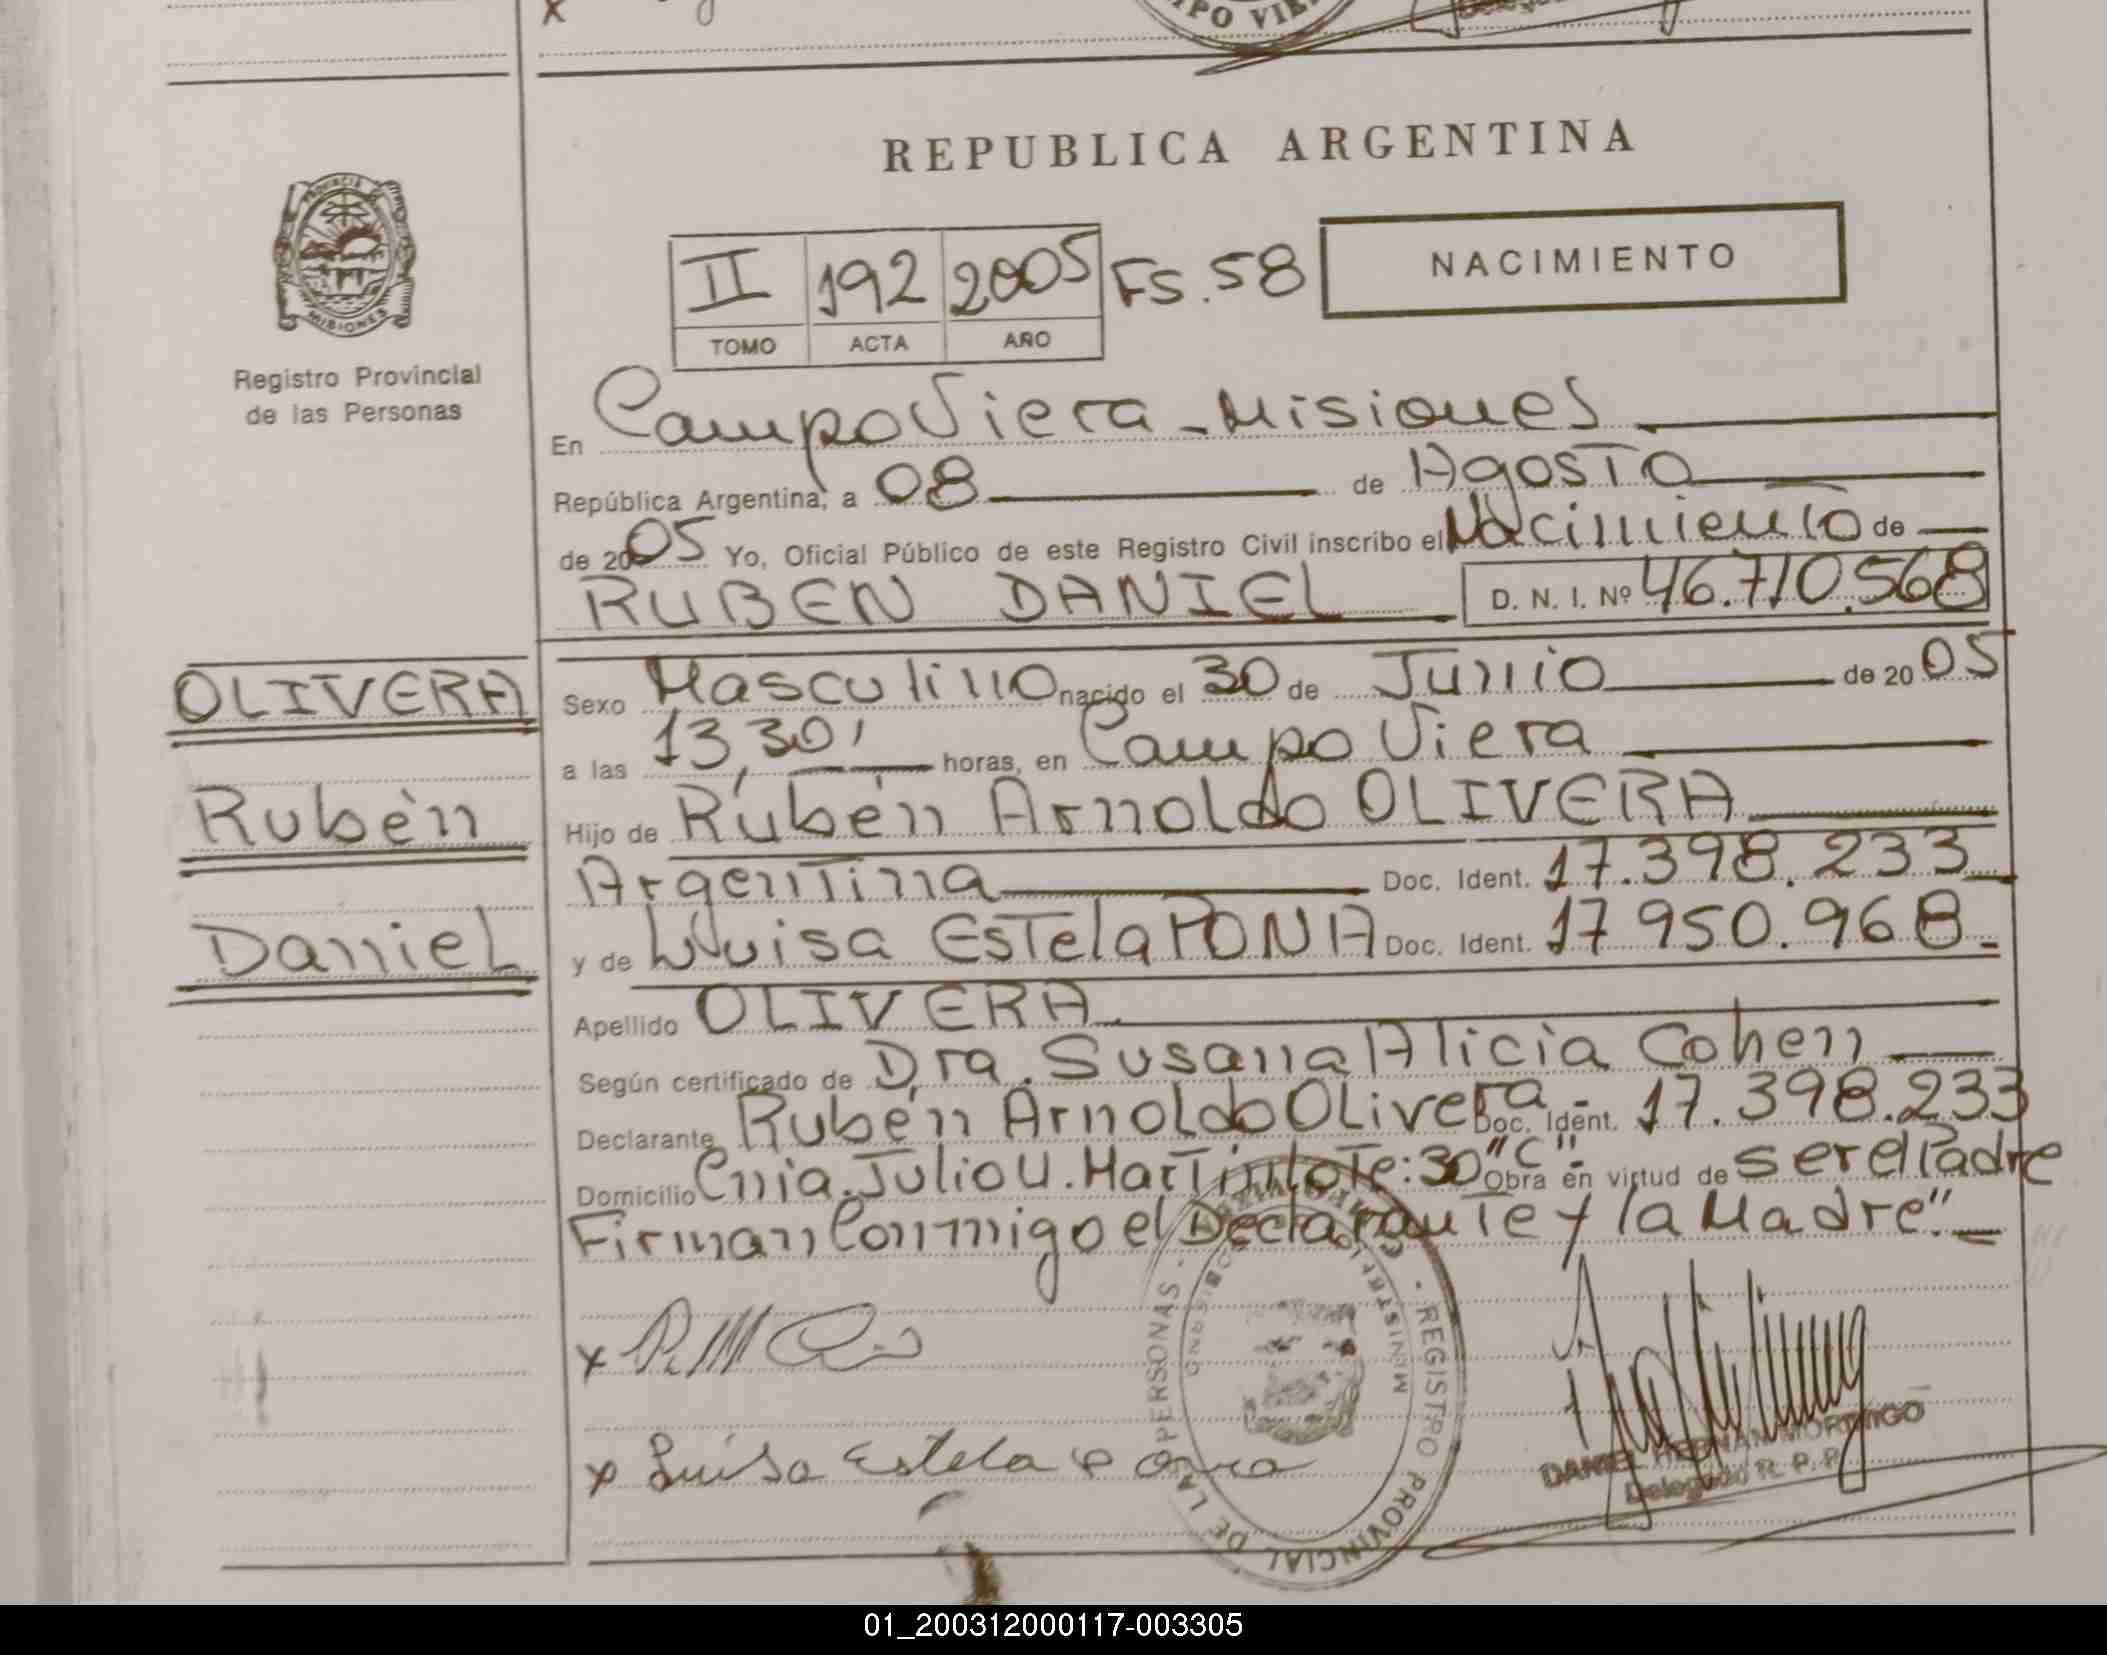 x
PO VIE
REPUBLICA ARGENTINA
PROVINCIA DE
MISIONES
Registro Provincial
de las Personas
II 192 2005 Fs. 58
TOMO ACTA AÑO
NACIMIENTO
En Campo Viera - Misiones
República Argentina, a 08 de Agosto
de 2005 Yo, Oficial Público de este Registro Civil inscribo el Nacimiento de
RUBEN DANIEL D. N. I. Nº 46.710.568
OLIVERA
Rubén
Daniel
Sexo Masculino nacido el 30 de Junio de 2005
a las 13,30' horas, en Campo Viera
Hijo de Rubén Arnoldo OLIVERA
Argentina Doc. Ident. 17.398.233
y de Luisa Estela PONA Doc. Ident. 17 950.968.
Apellido OLIVERA
Según certificado de Dra. Susana Alicia Cohen
Declarante Rubén Arnoldo OLivera Doc. Ident. 17.398.233
Domicilio Cnia. Julio U. Martin Lote: 30 "C" Obra en virtud de ser el Padre
Firman Conmigo el Declarante y la Madre"
x
x Luisa Estela
REGISTRO PROVINCIAL DE LAS PERSONAS
DANIEL HERNAN MORINIGO
Delegado R. P. P.
01_200312000117-003305